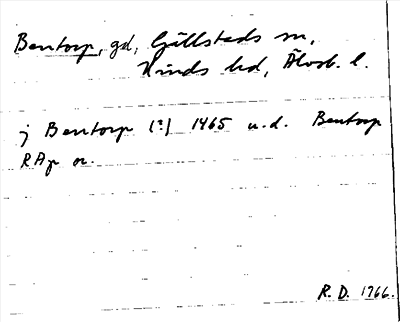 Bentorp, gd, Gällstads sn,
Kinds hd, Älvsb. l.
j Bentorp (?) 1465 u.d. Bentorp
RAp or.
R. D. 1966.